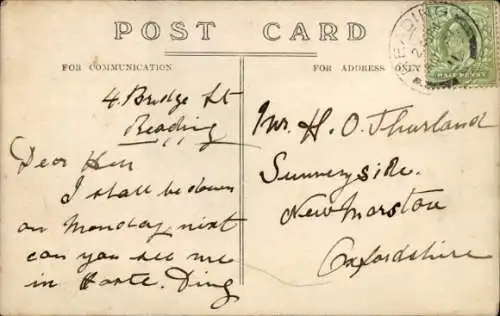 POST CARD
FOR COMMUNICATION
FOR ADDRESS ONLY
READING
HALF PENNY
4. Bridge St
Reading
Dear
I shall be down
on Monday next
can you see me
in Haste. Ding
Mr. H. O. Thurland
Sunnyside.
New Marston
Oxfordshire